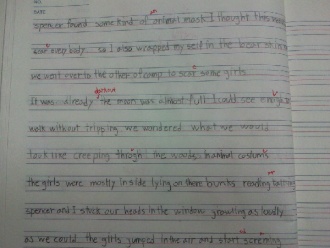 NO.
DATE
spencer found some kind of animal mask I thought this
scear every body. so I also wrapped my self in the bear skin
we went over to the other of camp to scar some girls.
It was already the moon was almost full I could see enough to
walk without tripping we wondered what we would
look like creeping through the woods
the girls were mostly inside lying on there bunks. reading talking
spencer and I stuck our heads in the window growling as loudly
as we could. the girls jumped in the air and start screaming